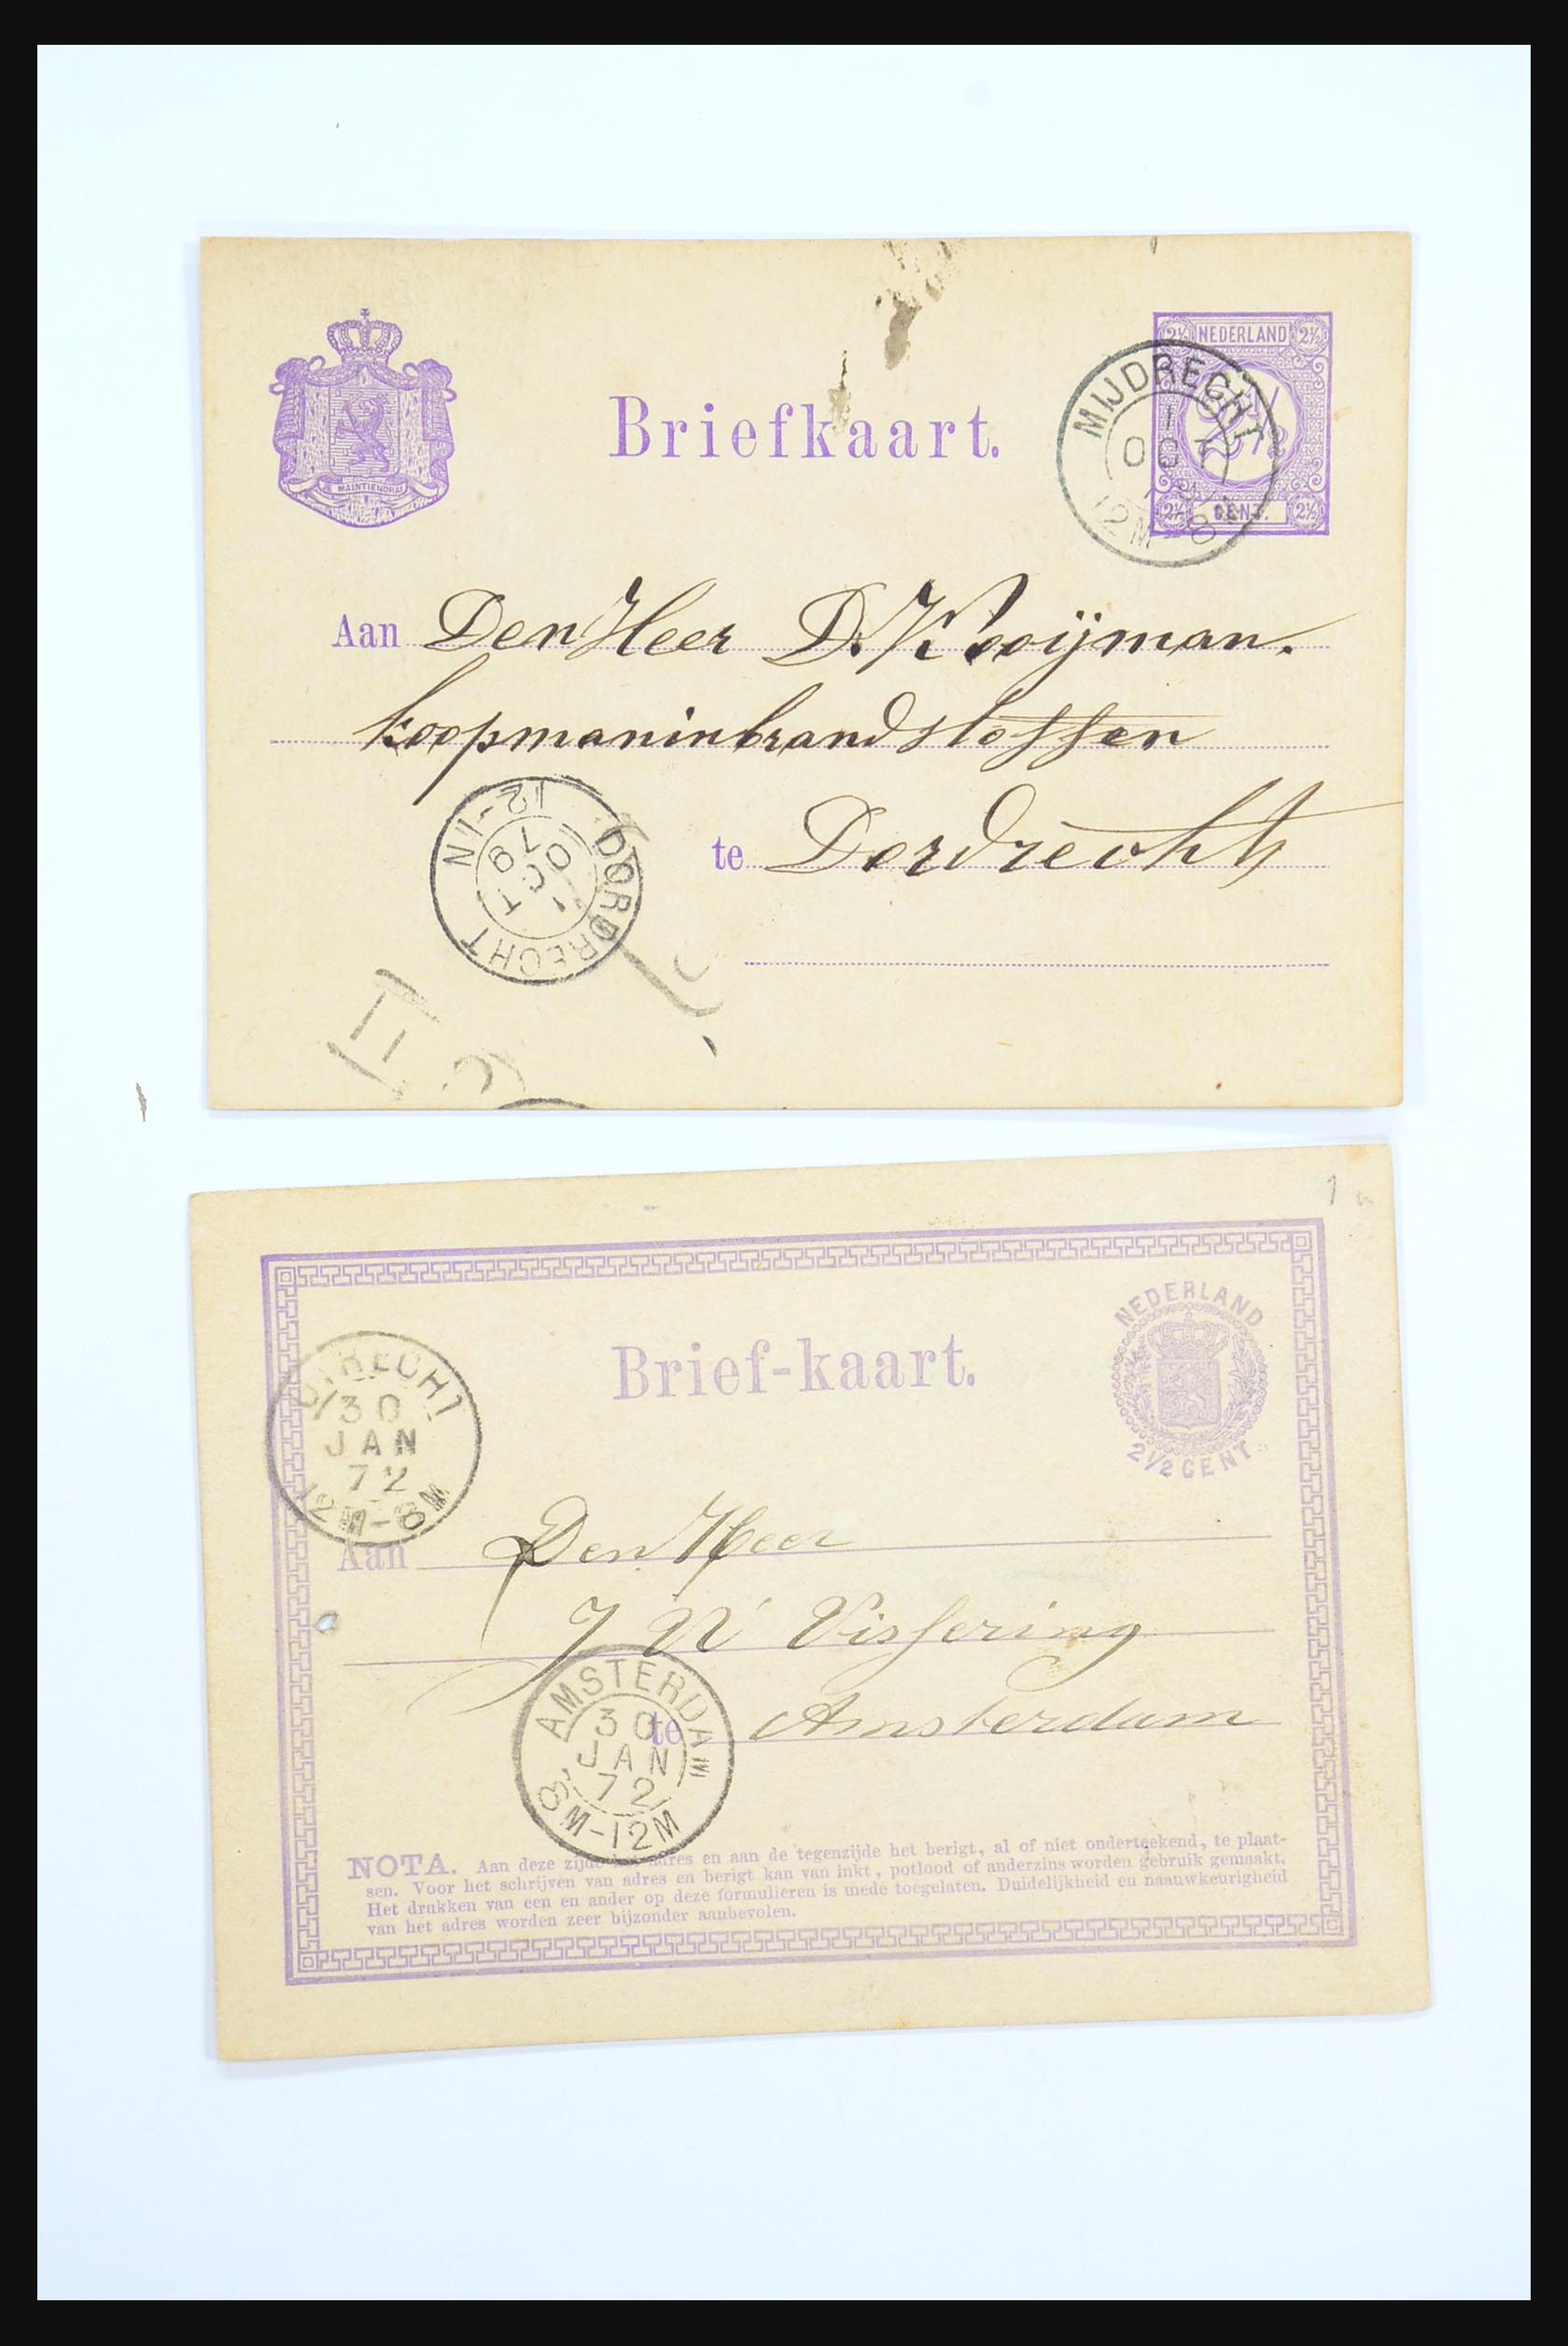 2½ NEDERLAND 2½
JE MAINTIENDRAI
Briefkaart.
MIJDRECHT
1
OCT
12M-8
2½ CENT. 2½
Aan Den Heer D. Kooijman.
koopman in brandstoffen
te Dordrecht
DORDRECHT
1
OCT
79
12-1N
NEDERLAND
2½ CENT
Brief-kaart.
UTRECHT
30
JAN
72
12M-8M
Aan Den Heer
J N Vissering
te Amsterdam
AMSTERDAM
30
JAN
72
8M-12M
NOTA. Aan deze zijde het adres en aan de tegenzijde het berigt, al of niet onderteekend, te plaat-
sen. Voor het schrijven van adres en berigt kan van inkt, potlood of anderzins worden gebruik gemaakt.
Het drukken van een en ander op deze formulieren is mede toegelaten. Duidelijkheid en naauwkeurigheid
van het adres worden zeer bijzonder aanbevolen.